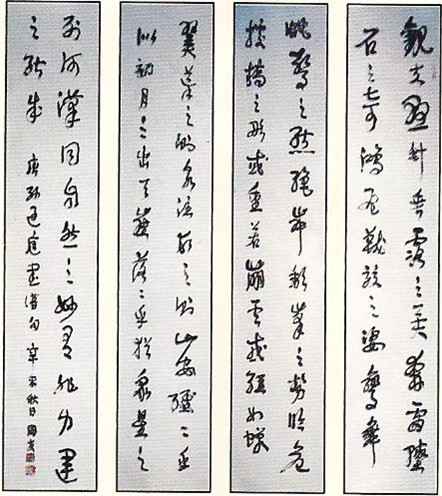 觀夫懸針垂露之異奔雷墜
石之奇鴻飛獸駭之姿鸞舞
蛇驚之態絕岸頹峯之勢臨危
據槁之形或重若崩雲或輕如蟬
翼導之則泉注頓之則山安纖々乎
似初月之出天崖落々乎猶衆星之
列河漢同自然之妙有非力運
之能成 唐孫過庭書譜句 秋日